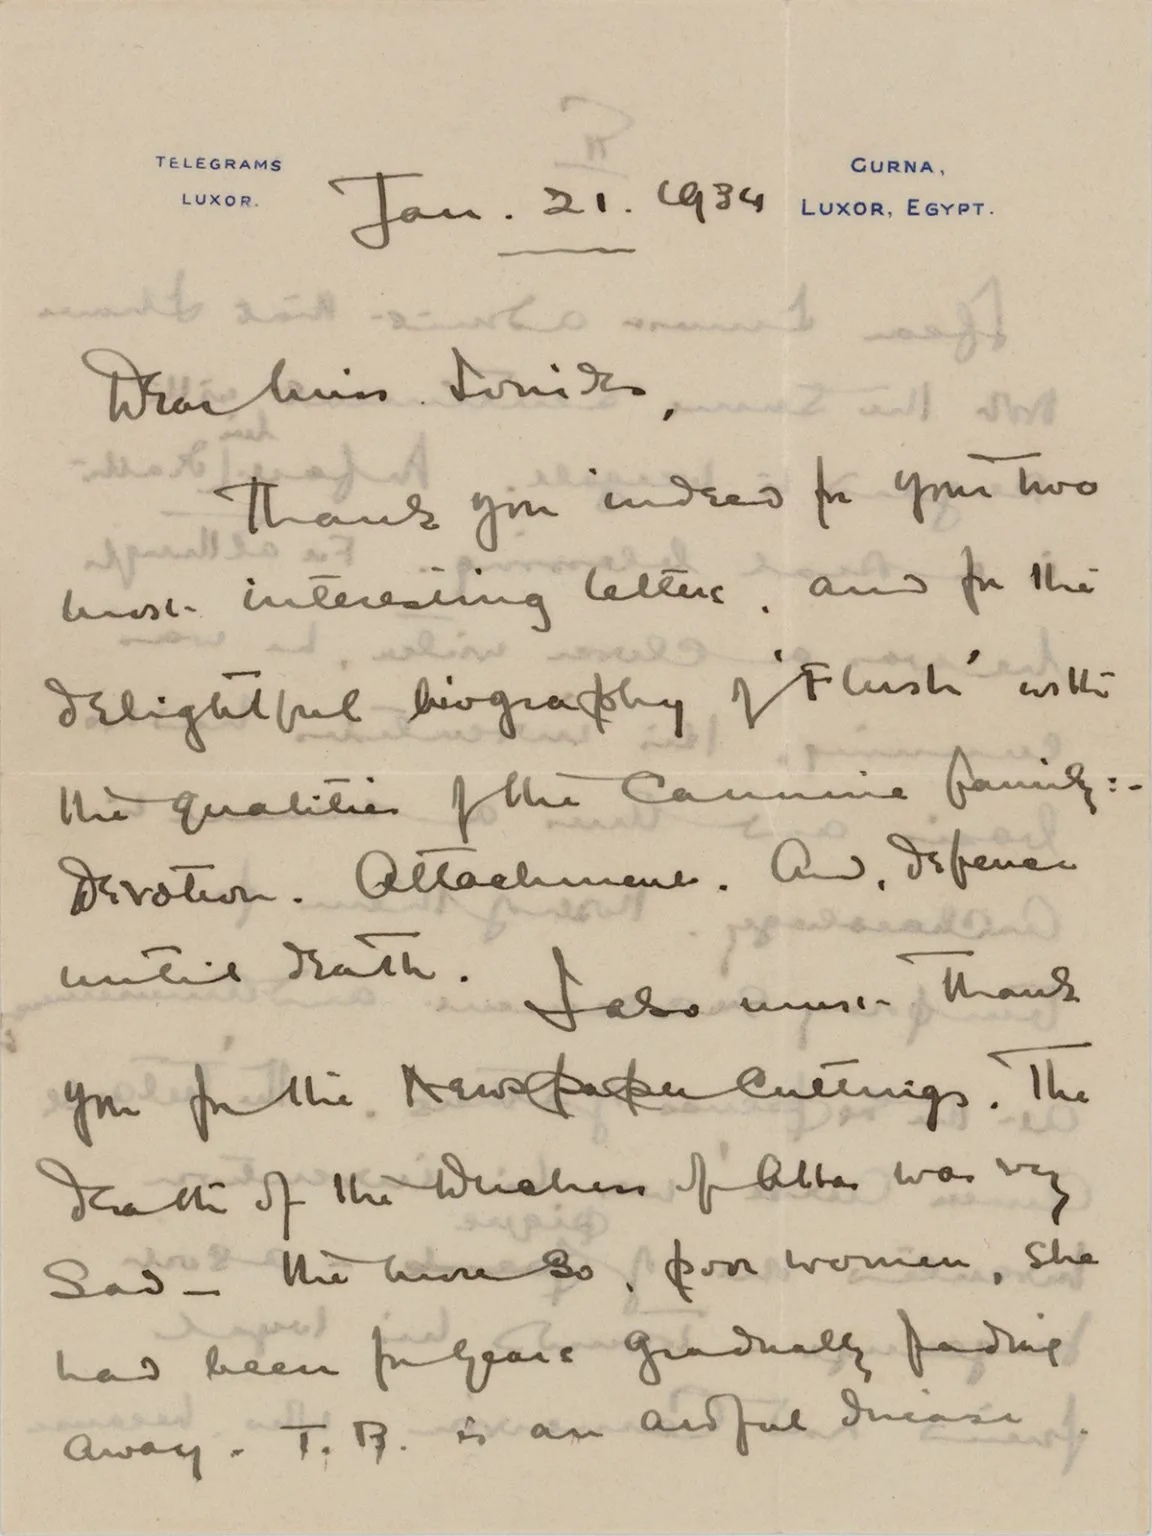 TELEGRAMS
LUXOR.
GURNA,
LUXOR, EGYPT.
Jan. 21. 1934
Dear Miss Ionides,
Thank you indeed for your two
most interesting letters, and for the
delightful biography of 'Flush' with
the qualities of the Cannine family:-
Devotion. Attachment. And, defence
until death. I also must thank
you for the Newspaper Cuttings. The
death of the Duchess of Alba was very
Sad — the more so, poor women, she
had been for years gradually fading
away. T. B. is an awful disease.